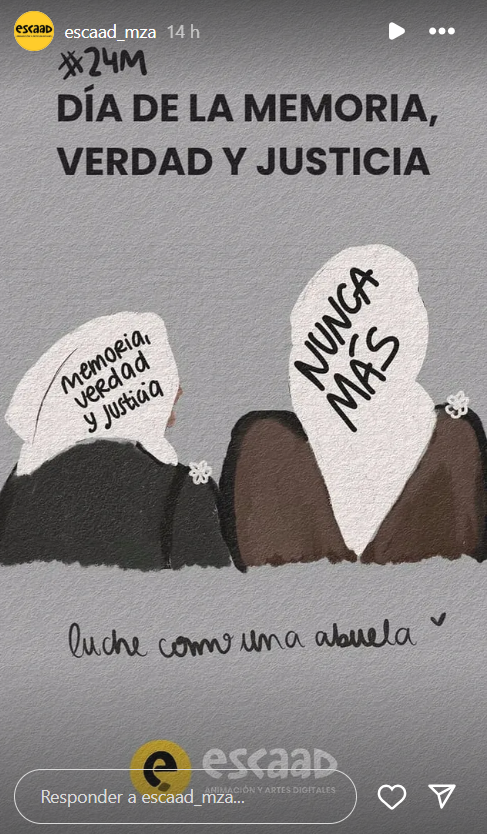 escaad
escaad_mza 14 h
#24M
DÍA DE LA MEMORIA,
VERDAD Y JUSTICIA
memoria,
verdad
y justicia
NUNCA
MÁS
luche como una abuela
escaad
ANIMACIÓN Y ARTES DIGITALES
Responder a escaad_mza...